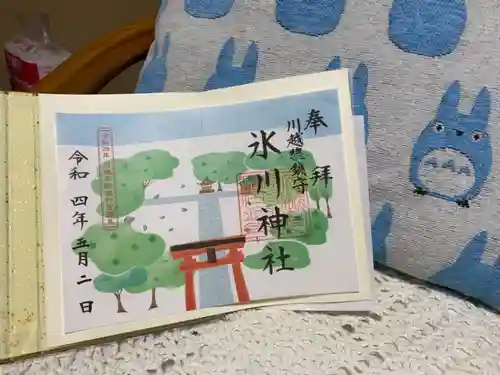 奉拝
川越總鎮守
氷川神社
令和四年五月二日